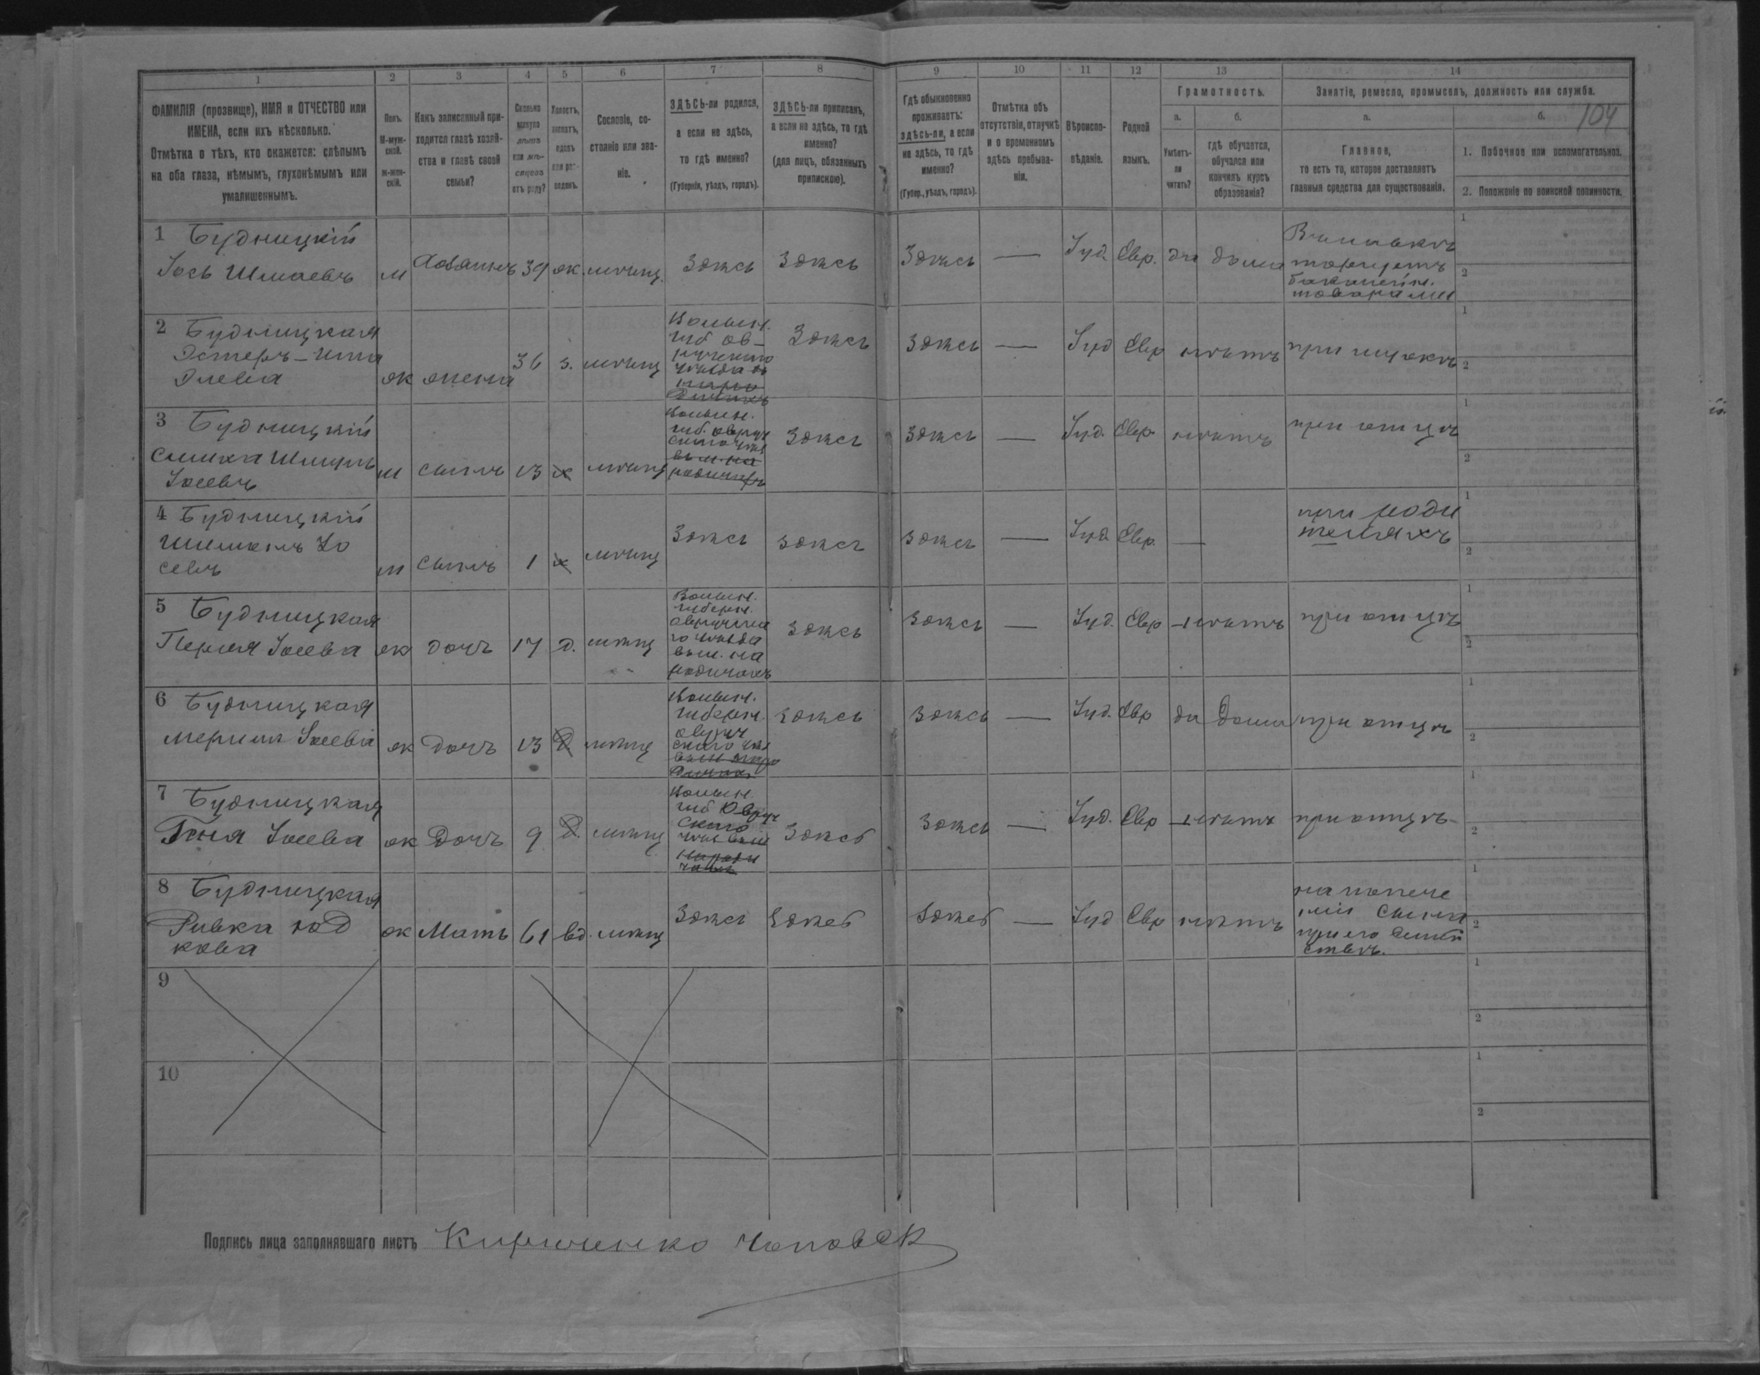 1 2 3 4 5 6 7 8 9 10 11 12 13 14
ФАМИЛІЯ (прозвище), ИМЯ и ОТЧЕСТВО или
ИМЕНА, если ихъ нѣсколько.
Отмѣтка о тѣхъ, кто окажется: слѣпымъ
на оба глаза, нѣмымъ, глухонѣмымъ или
умалишеннымъ.
Полъ.
М-муж-
ской.
Ж-жен-
скій.
Какъ записанный при-
ходится главѣ хозяй-
ства и главѣ своей
семьи?
Сколько
минуло
лѣтъ
или мѣ-
сяцевъ
отъ роду?
Холостъ,
женатъ,
вдовъ
или раз-
веденъ.
Сословіе, со-
стояніе или зва-
ніе.
ЗДѢСЬ-ли родился,
а если не здѣсь,
то гдѣ именно?
(Губернія, уѣздъ, городъ).
ЗДѢСЬ-ли приписанъ,
а если не здѣсь, то гдѣ
именно?
(для лицъ, обязанныхъ
припискою).
Гдѣ обыкновенно
проживаетъ:
здѣсь-ли, а если
не здѣсь, то гдѣ
именно?
(Губер., уѣздъ, городъ).
Отмѣтка объ
отсутствіи, отлучкѣ
и о временномъ
здѣсь пребыва-
ніи.
Вѣроиспо-
вѣданіе.
Родной
языкъ.
Грамотность.
а.
Умѣетъ-
ли
читать?
б.
гдѣ обучается,
обучался или
кончилъ курсъ
образованія?
Занятіе, ремесло, промыселъ, должность или служба.
а.
Главное,
то есть то, которое доставляетъ
главныя средства для существованія.
б. 104
1. Побочное или вспомогательное.
2. Положеніе по воинской повинности.
1 Будницкій
Іось Шмаевъ м хозяинъ 39 ж. мѣщ. Здѣсь Здѣсь Здѣсь — Іуд. Евр. да дома
торгуетъ
бакалейн.
товарами
1
2
2 Будницкая
Эстеръ-
ж жена 36 з. мѣщ
Волын.
губ. ов-
Здѣсь Здѣсь — Іуд Евр нѣтъ при мужѣ
1
2
3 Будницкій
Іосевъ м сынъ 13 х мѣщ
Волын.
губ. овруч
Здѣсь Здѣсь — Іуд. Евр нѣтъ при отцѣ
1
2
4 Будницкій
Іо
севъ м сынъ 1 х мѣщ Здѣсь Здѣсь Здѣсь — Іуд Евр —
при роди
теляхъ
1
2
5 Будницкая
Перля Іосева ж дочь 17 д. мѣщ
Волын.
губерн.
Здѣсь Здѣсь — Іуд. Евр нѣтъ при отцѣ
1
2
6 Будницкая
Іосева ж дочь 13 д мѣщ
Волын.
губерн.
овруч
скаго
Здѣсь Здѣсь — Іуд. Евр да дома при отцѣ
1
2
7 Будницкая
Геня Іосева ж дочь 9 д. мѣщ
Волын.
губ Овруч
скаго
Здѣсь Здѣсь — Іуд. Евр нѣтъ при отцѣ
1
2
8 Будницкая
Ривка Юд
кова ж Мать 61 вд мѣщ Здѣсь Здѣсь Здѣсь — Іуд Евр нѣтъ
на попече
ніи сына
при его семей
ствѣ.
1
2
9
1
2
10
1
2
Подпись лица заполнявшаго листъ